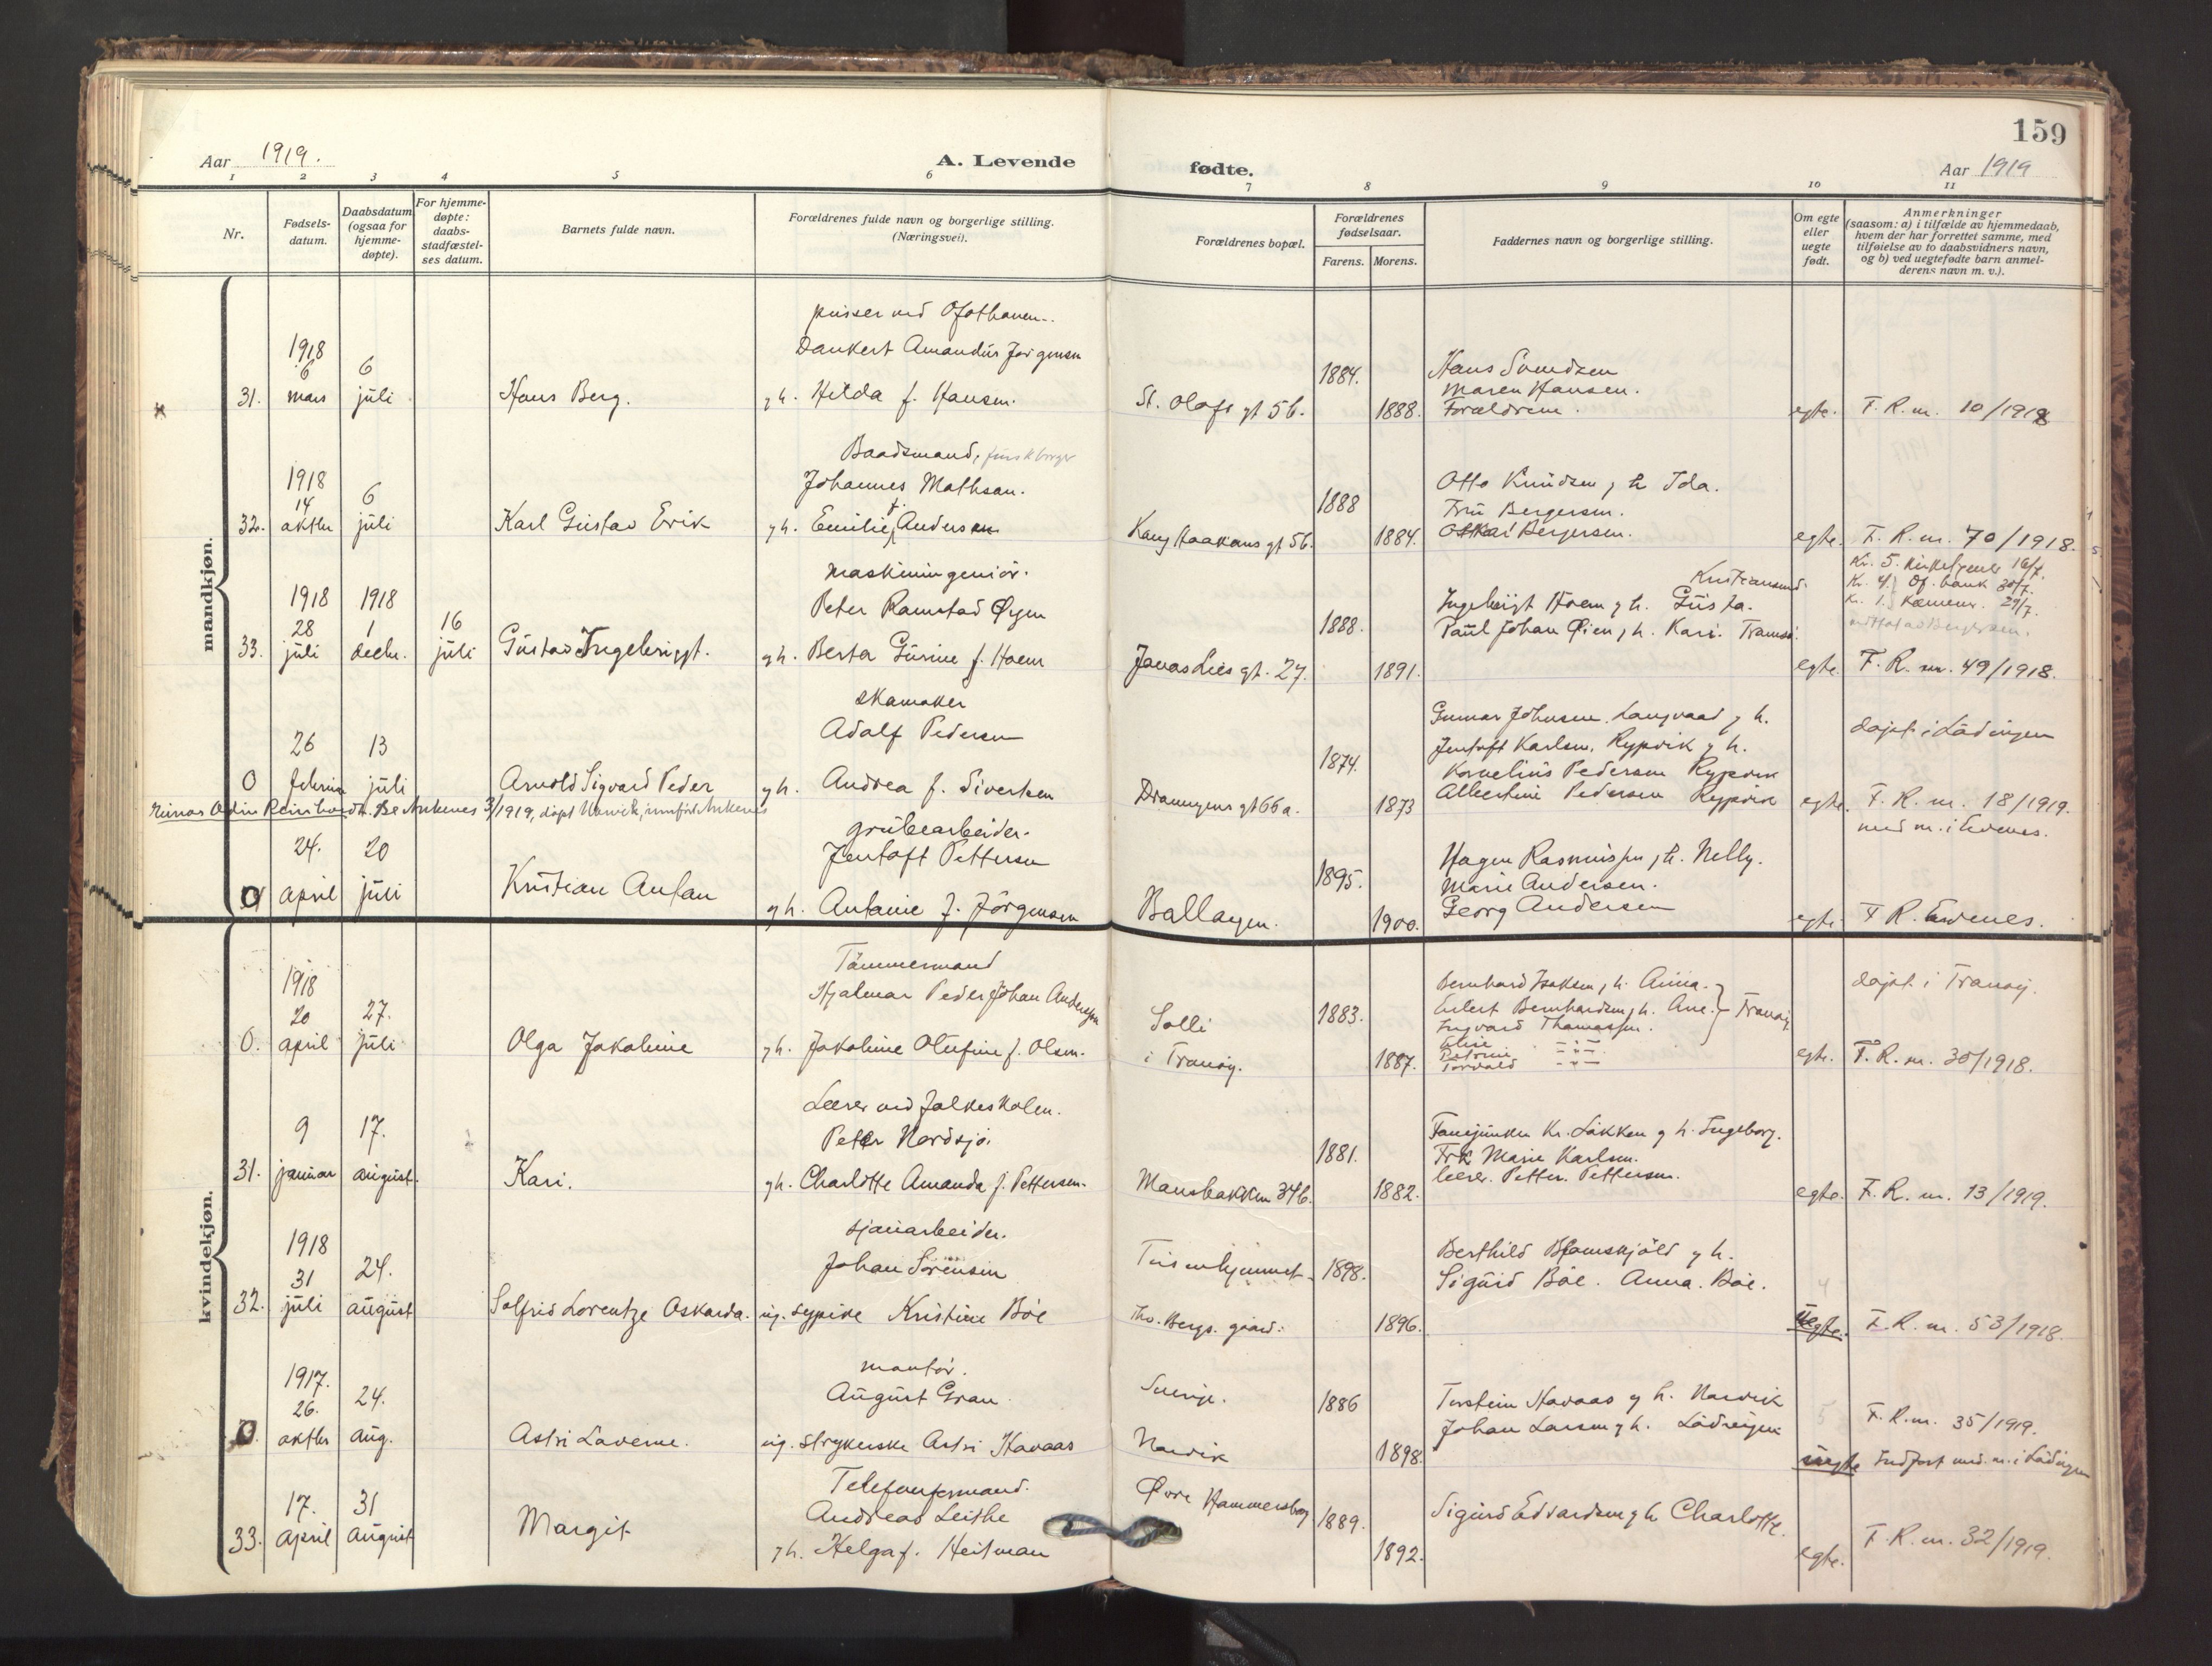 159
Aar 1919.
A. Levende fødte.
Aar 1919
1 2 3 4 5 6 7 8 9 10 11
Nr.
Fødsels-
datum.
Daabsdatum
(ogsaa for
hjemme-
døpte).
For hjemme-
døpte:
daabs-
stadfæstel-
ses datum.
Barnets fulde navn.
Forældrenes fulde navn og borgerlige stilling.
(Næringsvei).
Forældrenes bopæl.
Forældrenes
fødselsaar.
Farens. Morens.
Faddernes navn og borgerlige stilling.
Om egte
eller
uegte
født.
Anmerkninger
(saasom: a) i tilfælde av hjemmedaab,
hvem der har forrettet samme, med
tilføielse av to daabsvidners navn,
og b) ved uegtefødte barn anmel-
derens navn m. v.).
mandkjøn.
31.
1918
6
mars
6
juli
Hans Berg.
pusser ved Ofotbanen.
Dankert Amandus Jørgensen
g h. Hilda f. Hansen.
St. Olafs gt 56.
1884.
1888.
Hans Svendsen
Maren Hansen.
Forældrene.
egte.
F. R. nr. 10/1918
32.
1918
14
oktbr
6
juli
Karl Gustav Erik
Baadsmand, finsk borger
Johannes Mathson.
g h. Emilie f. Anderson
Kong Haakons gt 56.
1888
1884.
Otto Knudsen g h Ida.
Fru Bergersen.
Oskar Bergersen.
egte.
F. R. nr. 70/1918.
33.
1918
28
juli
1918
1
decbr.
16
juli
Gustav Ingebrigt.
Maskiningeniør.
Peter Ramstad Øyen
g h. Berta Gurine f. Hoem
Jonas Lies gt. 27.
1888.
1891.
Kristiansund.
Ingebrigt Hoem g h. Gusta.
Paul Johan Øien g h. Kari. Tromsø.
Kr. 5. Kirketjener 16/7.
Kr. 4. Of. bank 30/7.
Kr. 1. Kæmner. 29/7.
egte.
F. R. nr. 49/1918.
O
26
februar
13
juli
Arnold Sigvard Peder
skomaker
Adolf Pedersen
g h. Andrea f. Sivertsen
Dronningens gt 66 a.
1874.
1873
Gunnar Johnsen. Langvaad g h.
Jentoft Karlsen, Rypvik g h.
Kornelius Pedersen Rypvik
Albertine Pedersen Rypvik
egte.
døpt i Lødingen
F. R. nr. 18/1919.
Reinhardt. Ankenes 3/1919, døpt Narvik, innført Ankenes
O
24.
april
20
juli
Kristian Anton
grubearbeider.
Jentoft Pettersen
g h. Antonie f. Jørgensen
Ballangen.
1895.
1900.
Hagen Rasmussen g h. Nelly.
Marie Andersen.
Georg Andersen
egte.
med nr. i Evenes.
F R. Evenes.
kvindekjøn.
0.
1918
20
april
27.
juli
Olga Jakobine
Tømmermand
Hjalmar Peder Johan Andersen
g h. Jakobine Olufine f. Olsen.
Solli
i Tranøy.
1883.
1887.
Bernhard Isaksen g h. Anna.
Edert Bernhardsen g h. Ane.
Ingvard Thomassen.
Elise -"-
Petrine -"-
Torvald -"-
Tranøy
egte.
døpt i Tranøy.
F. R. nr. 30/1918.
31.
9
januar
17.
august.
Kari.
Lærer ved folkeskolen.
Peter Nordsjø.
g h. Charlotte Amanda f. Pettersen.
Mausbakken 34 b.
1881.
1882.
Fanejunker Kr. Løkken g h. Ingeborg.
Frk Marie Karlsen.
lærer. Petter Pettersen.
egte.
F. R. nr. 13/1919.
32.
1918
31
juli
24.
august
Solfrid Lorentze Oskarda.
sjauarbeider.
Johan Sörensen
ug. sypike Kristine Böe
Turisthjemmet
Tho. Bergs. gaard.
1898.
1896.
Berthild Blomskjöld g h.
Sigurd Böe. Anna. Böe.
uegte.
F. R. nr. 53/1918.
O.
1917.
26.
oktbr
24.
aug.
Astri Laverne.
montør.
August Gran.
ug. strykerske Astri Havaas
Sverige.
Narvik
1886
1898.
Torstein Havaas g h. Narvik
Johan Larsen g h. Lödingen
uegte
F. R. nr. 35/1919.
Indført med nr. i Lödingen
33.
17.
april
31
august
Margit
Telefonformand.
Andreas Leithe
g h. Helga f. Heitman
Øvre Hammersborg
1889.
1892.
Sigurd Edvardsen g h Charlotte.
egte.
F. R. nr. 32/1919.